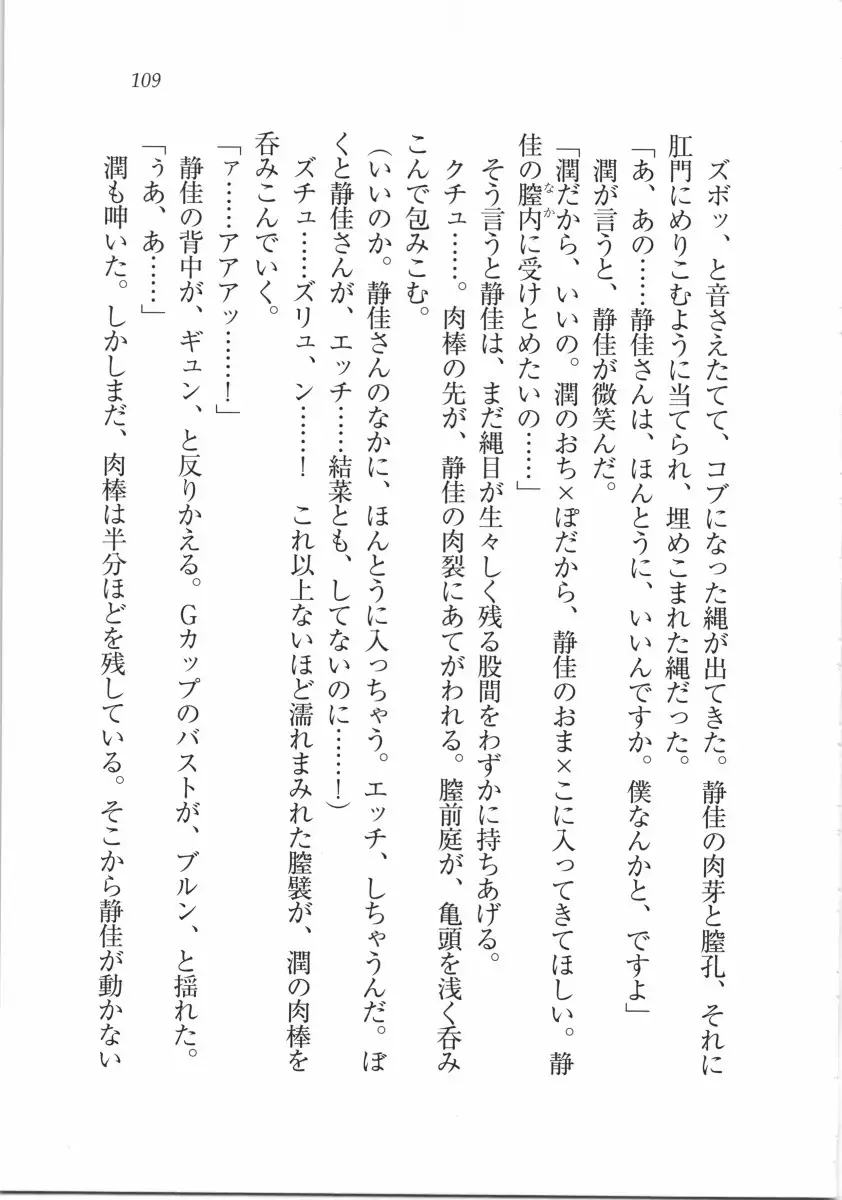 109
ズボッ、と音さえたてて、コブになった縄が出てきた。静佳の肉芽と膣孔、それに
肛門にめりこむように当てられ、埋めこまれた縄だった。
「あ、あの……静佳さんは、ほんとうに、いいんですか。僕なんかと、ですよ」
潤が言うと、静佳が微笑んだ。
「潤だから、いいの。潤のおち×ぽだから、静佳のおま×こに入ってきてほしい。静
佳の膣内なかに受けとめたいの……」
そう言うと静佳は、まだ縄目が生々しく残る股間をわずかに持ちあげる。
クチュ……。肉棒の先が、静佳の肉裂にあてがわれる。膣前庭が、亀頭を浅く呑み
こんで包みこむ。
(いいのか。静佳さんのなかに、ほんとうに入っちゃう。エッチ、しちゃうんだ。ぼ
くと静佳さんが、エッチ……結菜とも、してないのに……!)
ズチュ……ズリュ、ン……! これ以上ないほど濡れまみれた膣襞が、潤の肉棒を
呑みこんでいく。
「ァ……アアアッ……!」
静佳の背中が、ギュン、と反りかえる。Gカップのバストが、ブルン、と揺れた。
「ぅあ、あ……」
潤も呻いた。しかしまだ、肉棒は半分ほどを残している。そこから静佳が動かない